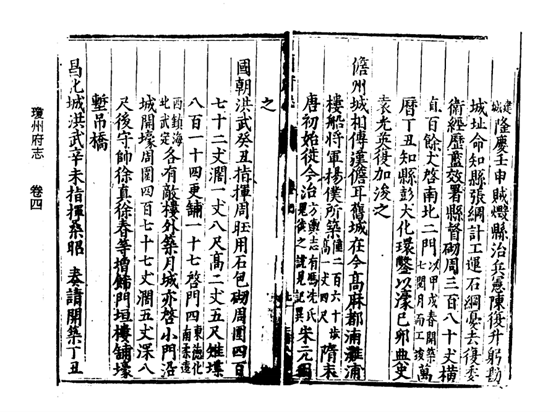 建城隆慶壬申賊燬縣治兵憲陳復升躬勘
城址命知縣張綱計工運石綱憂去復委
衛經歷藍效署縣督砌周三百八十丈橫
亘百餘丈啓南北二門以甲戌春開築七閱月而工竣萬
曆丁丑知縣彭大化環鑿以濠己卯典史
袁光英復加浚之
儋州城相傳漢儋耳舊城在今高麻都南灘浦
樓船將軍楊僕所築二百六十步高一丈四尺隋末
唐初始徙今治方輿志有馮冼氏見後之說見記異朱元因
之
國朝洪武癸丑指揮周旺用石包砌周圍四百
七十二丈濶一丈八尺高二丈五尺雉堞
八百一十四更舖一十七啓門四東德化南柔遠
西鎮海北武定各有敵樓外築月城亦啓小門沿
城開壕周圍四百七十七丈濶五丈深八
尺後守帥徐真徐春等增飾門垣樓舖壕
塹吊橋
昌化城洪武辛未指揮桑昭 奏請開築丁丑
瓊州府志 卷四